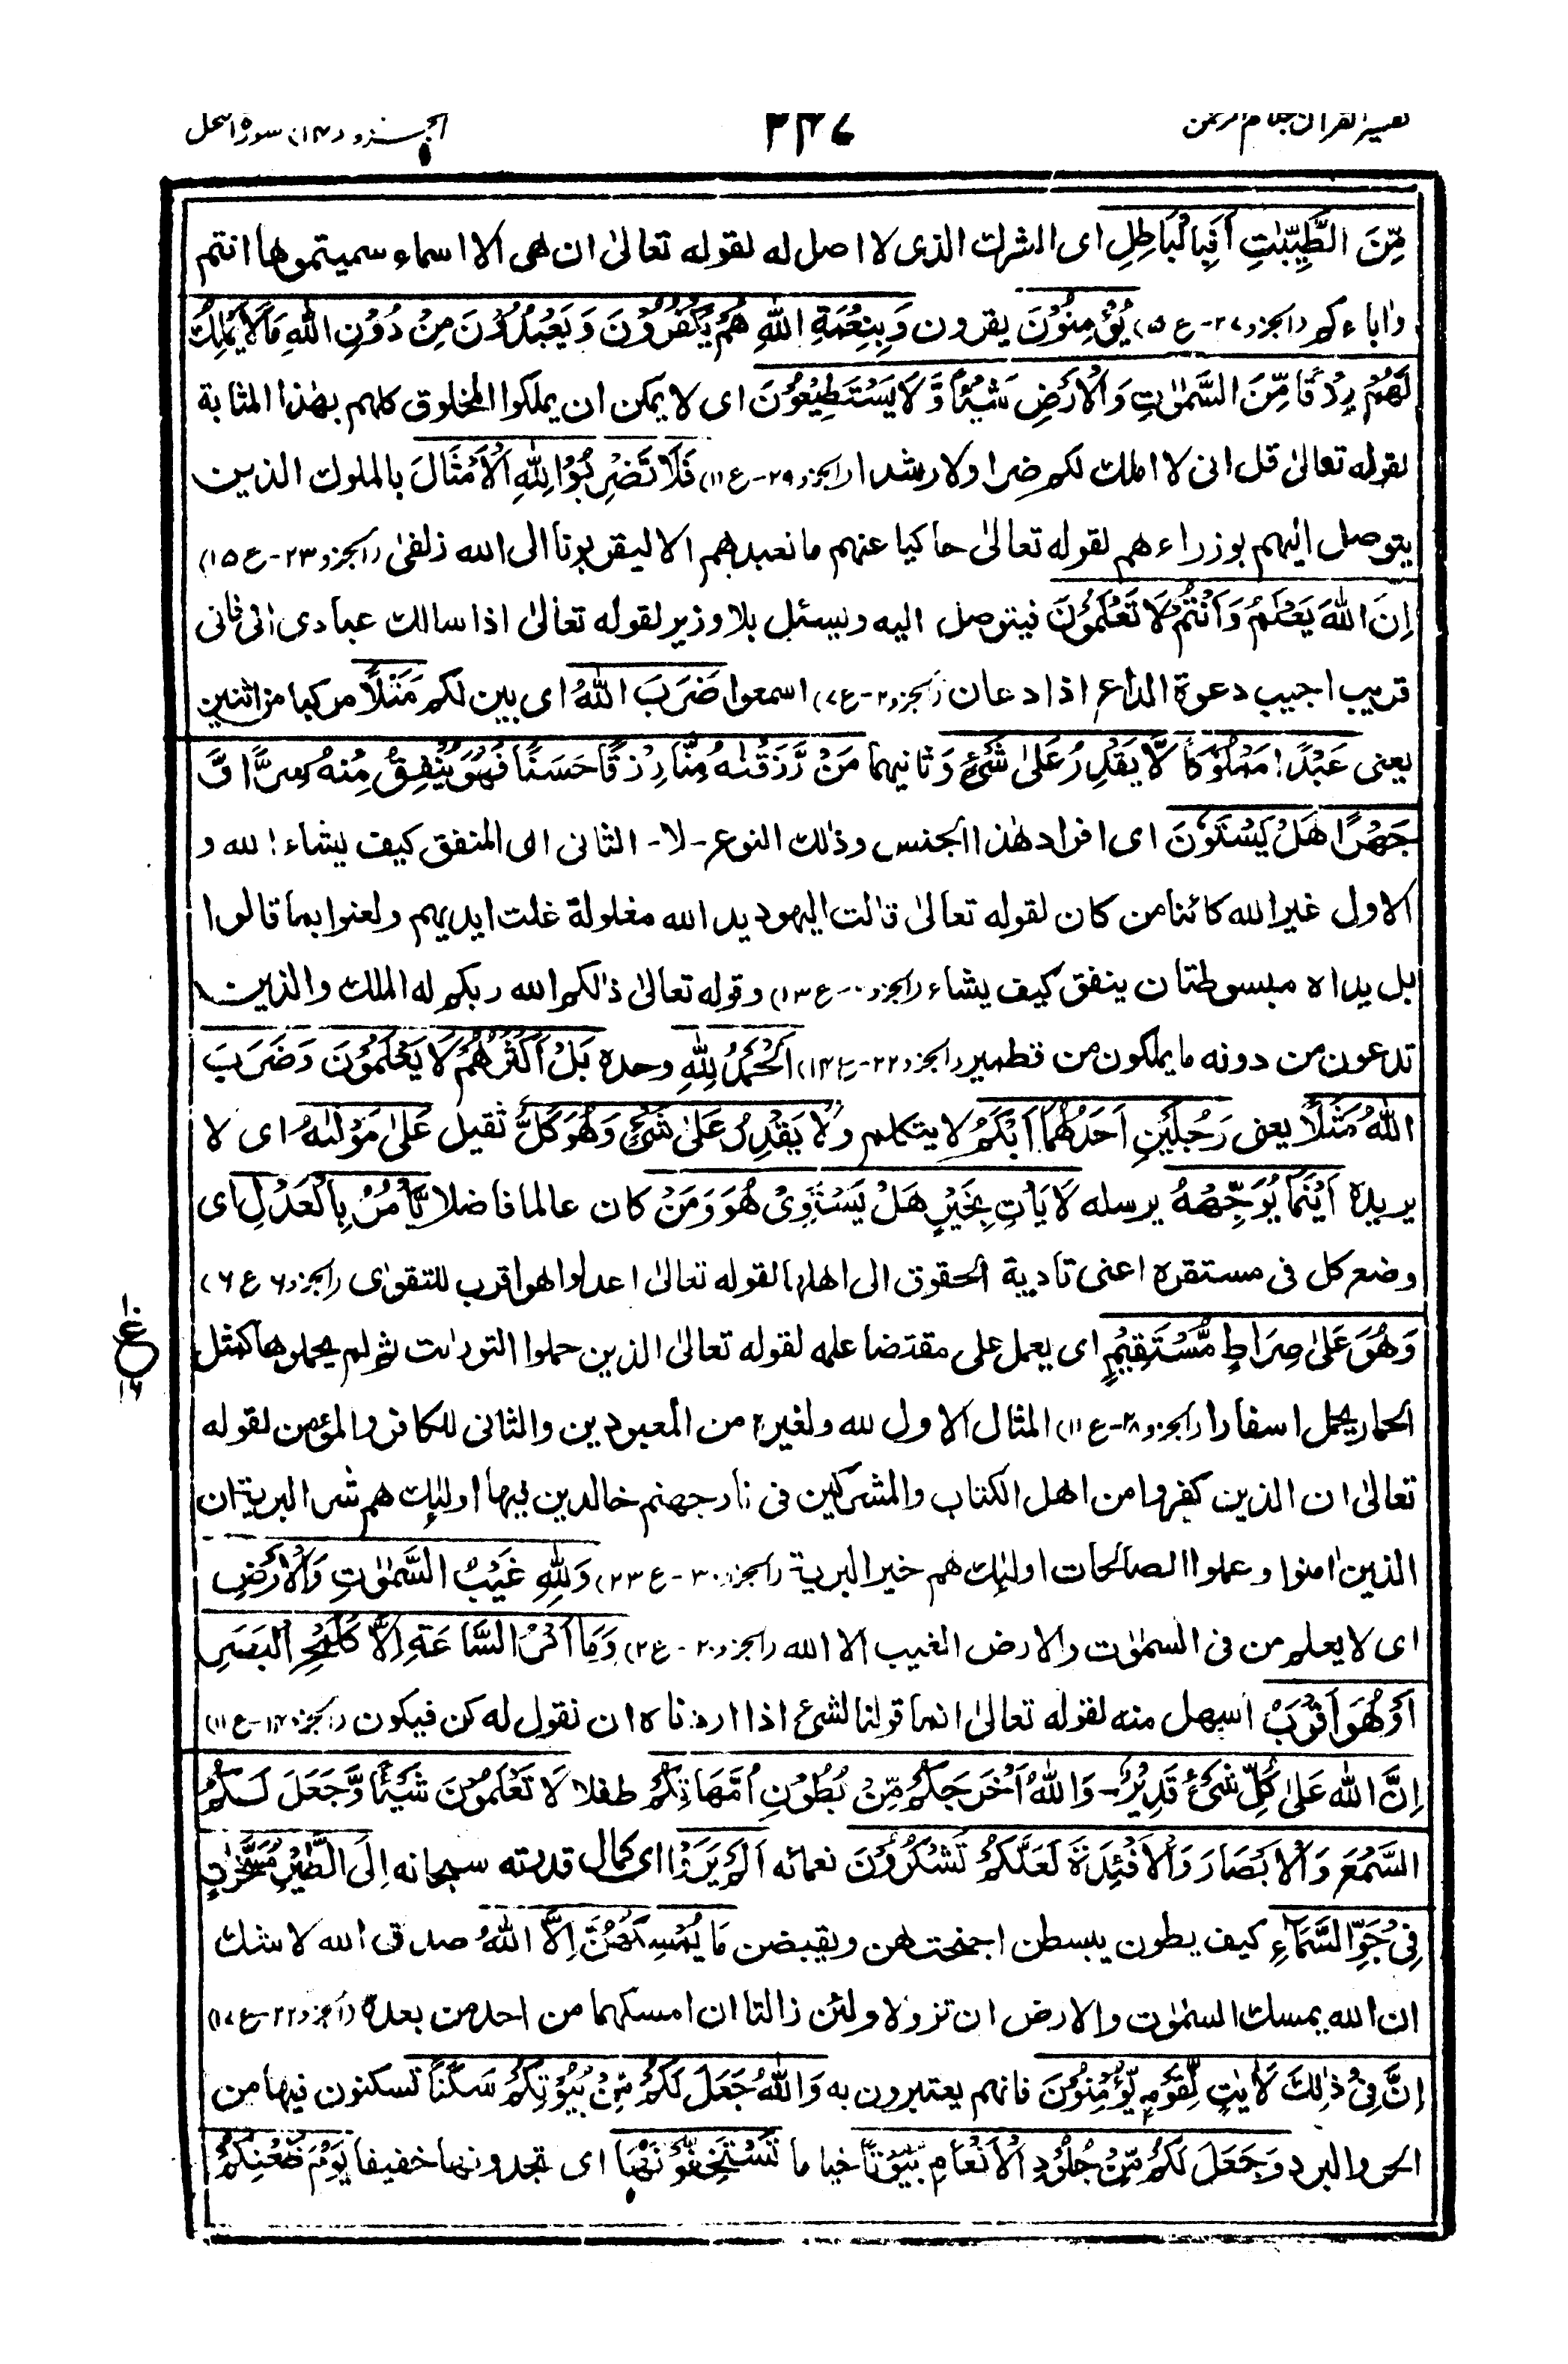 تفسير القرآن بكلام الرحمن ٣٣٧ الجزو (١٤) سورة النحل
مِّنَ الطَّيِّبٰتِ اَفَبِالْبَاطِلِ اى الشرك الذى لا اصل له لقوله تعالىٰ ان هى الا اسماء سميتموها انتم
واٰباءكم (الجزو ٢٧-ع٥) يُؤْمِنُوْنَ يقرون وَبِنِعْمَةِ اللهِ هُمْ يَكْفُرُوْنَ وَيَعْبُدُوْنَ مِنْ دُوْنِ اللهِ مَا لَا يَمْلِكُ
لَهُمْ رِزْقًا مِّنَ السَّمٰوٰتِ وَالْاَرْضِ شَيْئًا وَّلَا يَسْتَطِيْعُوْنَ اى لا يمكن ان يملكوا المخلوق كلهم بهٰذا المثابة
لقوله تعالىٰ قل انى لا املك لكم ضرا ولا رشدا (الجزو ٢٩-ع١١) فَلَا تَضْرِبُوْا لِلّٰهِ الْاَمْثَالَ بالملوك الذين
يتوصل اليهم بوزراءهم لقوله تعالىٰ حاكيا عنهم ما نعبدهم الا ليقربونا الى الله زلفىٰ (الجزو ٢٣-ع١٥)
اِنَّ اللهَ يَعْلَمُ وَاَنْتُمْ لَا تَعْلَمُوْنَ فيتوصل اليه ويسئل بلا وزير لقوله تعالىٰ اذا سالك عبادى انى فانى
قريب اجيب دعوة الداع اذا دعان (الجزو ٢-ع٧) اسمعوا ضَرَبَ اللهُ اى بين لكم مَثَلًا مركبا من اثنين
يعنى عَبْدًا مَمْلُوْكًا لَّا يَقْدِرُ عَلىٰ شَىْءٍ وثانيهما مَنْ رَّزَقْنٰهُ مِنَّا رِزْقًا حَسَنًا فَهُوَ يُنْفِقُ مِنْهُ سِرًّا وَّ
جَهْرًا هَلْ يَسْتَوٗنَ اى افراد هٰذا الجنس وذٰلك النوع-لا-الثانى اى المنفق كيف يشاء الله و
الاول غير الله كائنا من كان لقوله تعالىٰ قالت اليهود يد الله مغلولة غلت ايديهم ولعنوا بما قالوا
بل يداه مبسوطتان ينفق كيف يشاء (الجزو -ع١٣) وقوله تعالىٰ ذٰلكم الله ربكم له الملك والذين
تدعون من دونه ما يملكون من قطمير (الجزو ٢٢-ع١٤) اَلْحَمْدُ لِلّٰهِ وحده بَلْ اَكْثَرُهُمْ لَا يَعْلَمُوْنَ وَضَرَبَ
اللهُ مَثَلًا يعنى رَجُلَيْنِ اَحَدُهُمَا اَبْكَمُ لا يتكلم وَلَا يَقْدِرُ عَلىٰ شَىْءٍ وَهُوَ كَلٌّ ثقيل عَلىٰ مَوْلٰهُ اى لا
يريده اَيْنَمَا يُوَجِّهْهُ يرسله لَا يَاْتِ بِخَيْرٍ هَلْ يَسْتَوِىْ هُوَ وَمَنْ كان عالما فاضلا يَّاْمُرُ بِالْعَدْلِ اى
وضع كل فى مستقره اعنى تادية الحقوق الى اهلها لقوله تعالىٰ اعدلوا هو اقرب للتقوىٰ (الجزو ٦ ع٦)
وَهُوَ عَلىٰ صِرَاطٍ مُّسْتَقِيْمٍ اى يعمل على مقتضا علمه لقوله تعالىٰ الذين حملوا التورٰىت ثم لم يحملوها كمثل
ع
١٦
الحمار يحمل اسفارا (الجزو ٢٨-ع١١) المثال الاول لله ولغيره من المعبودين والثانى للكافر والمؤمن لقوله
تعالىٰ ان الذين كفروا من اهل الكتاب والمشركين فى نار جهنم خالدين فيها اولٰئك هم شر البرية ان
الذين اٰمنوا وعملوا الصالحات اولٰئك هم خير البرية (الجزو ٣٠-ع٢٣) وَلِلّٰهِ غَيْبُ السَّمٰوٰتِ وَالْاَرْضِ
اى لا يعلم من فى السمٰوٰت والارض الغيب الا الله (الجزو ٢٠-ع٢) وَمَا اَمْرُ السَّاعَةِ اِلَّا كَلَمْحِ الْبَصَرِ
اَوْ هُوَ اَقْرَبُ اسهل منه لقوله تعالىٰ انما قولنا لشىء اذا اردناه ان نقول له كن فيكون (الجزو ١٤-ع١١)
اِنَّ اللهَ عَلىٰ كُلِّ شَىْءٍ قَدِيْرٌ-وَاللهُ اَخْرَجَكُمْ مِّنْ بُطُوْنِ اُمَّهَاتِكُمْ طفلا لَا تَعْلَمُوْنَ شَيْئًا وَّجَعَلَ لَكُمُ
السَّمْعَ وَالْاَبْصَارَ وَالْاَفْئِدَةَ لَعَلَّكُمْ تَشْكُرُوْنَ نعمائه اَلَمْ يَرَوْا اى كمال قدرته سبحانه اِلَى الطَّيْرِ مُسَخَّرٰتٍ
فِىْ جَوِّ السَّمَاءِ كيف يطون يبسطن اجنحتهن ويقبضن مَا يُمْسِكُهُنَّ اِلَّا اللهُ صدق الله لا شك
ان الله يمسك السمٰوٰت والارض ان تزولا ولئن زالتا ان امسكهما من احد من بعده (الجزو ٢٢-ع١٧)
اِنَّ فِىْ ذٰلِكَ لَاٰيٰتٍ لِّقَوْمٍ يُّؤْمِنُوْنَ فانهم يعتبرون به وَاللهُ جَعَلَ لَكُمْ مِّنْ بُيُوْتِكُمْ سَكَنًا تسكنون فيها من
الحر والبرد وَجَعَلَ لَكُمْ مِّنْ جُلُوْدِ الْاَنْعَامِ بُيُوْتًا خياما تَسْتَخِفُّوْنَهَا اى تجدونها خفيفا يَوْمَ ظَعْنِكُمْ